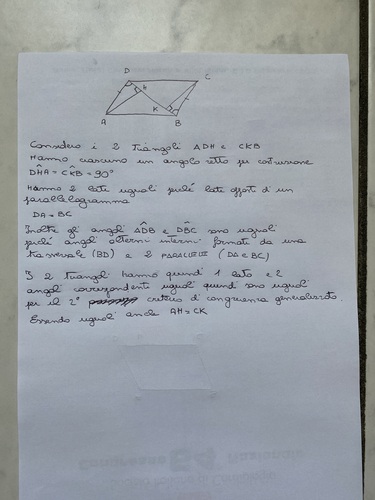 D
C
H
K
A
B
Considero i 2 triangoli ADH e CKB
Hanno ciascuno un angolo retto per costruzione
DĤA = CK̂B = 90°
Hanno 2 lati uguali poiché lati opposti di un
parallelogramma
DA = BC
Inoltre gli angoli AD̂B e DB̂C sono uguali
poiché angoli alterni interni formati da una
trasversale (BD) e 2 PARALLELE (DA e BC)
I 2 triangoli hanno quindi 1 lato e 2
angoli corrispondenti uguali quindi sono uguali
per il 2° criterio di congruenza generalizzato.
Essendo uguali anche AH = CK